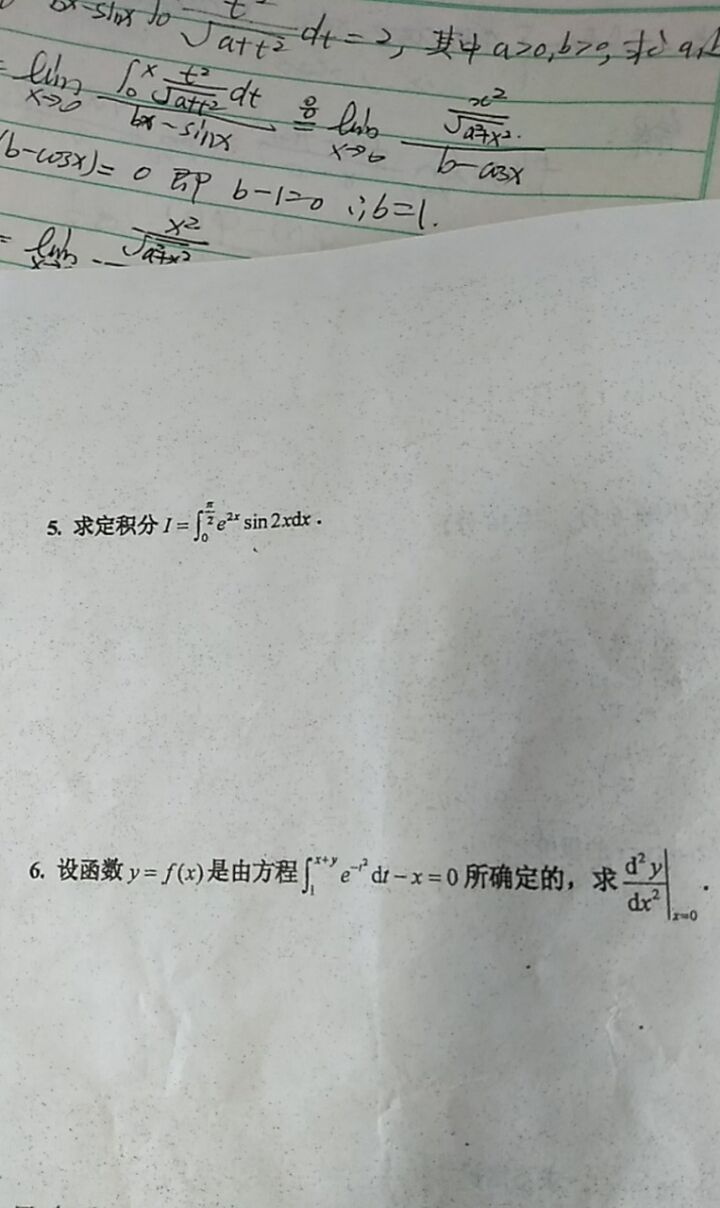 bx-sinx ∫₀ t²/√(a+t²) dt = 2, 其中 a>0, b>0, 求 a,
= lim x→0 ∫₀ˣ t²/√(a+t²) dt / (bx-sinx) = 0/0 lim x→0 (x²/√(a²+x²)) / (b-cosx)
(b-cosx) = 0 即 b-1=0 ∴b=1.
= lim x²/√(a²+x²)
5. 求定积分 I = ∫₀^(π/2) e^(2x) sin 2xdx .
6. 设函数 y = f(x) 是由方程 ∫₁^(x+y) e^(-t²) dt - x = 0 所确定的，求 d²y/dx² |ₓ₌₀ .